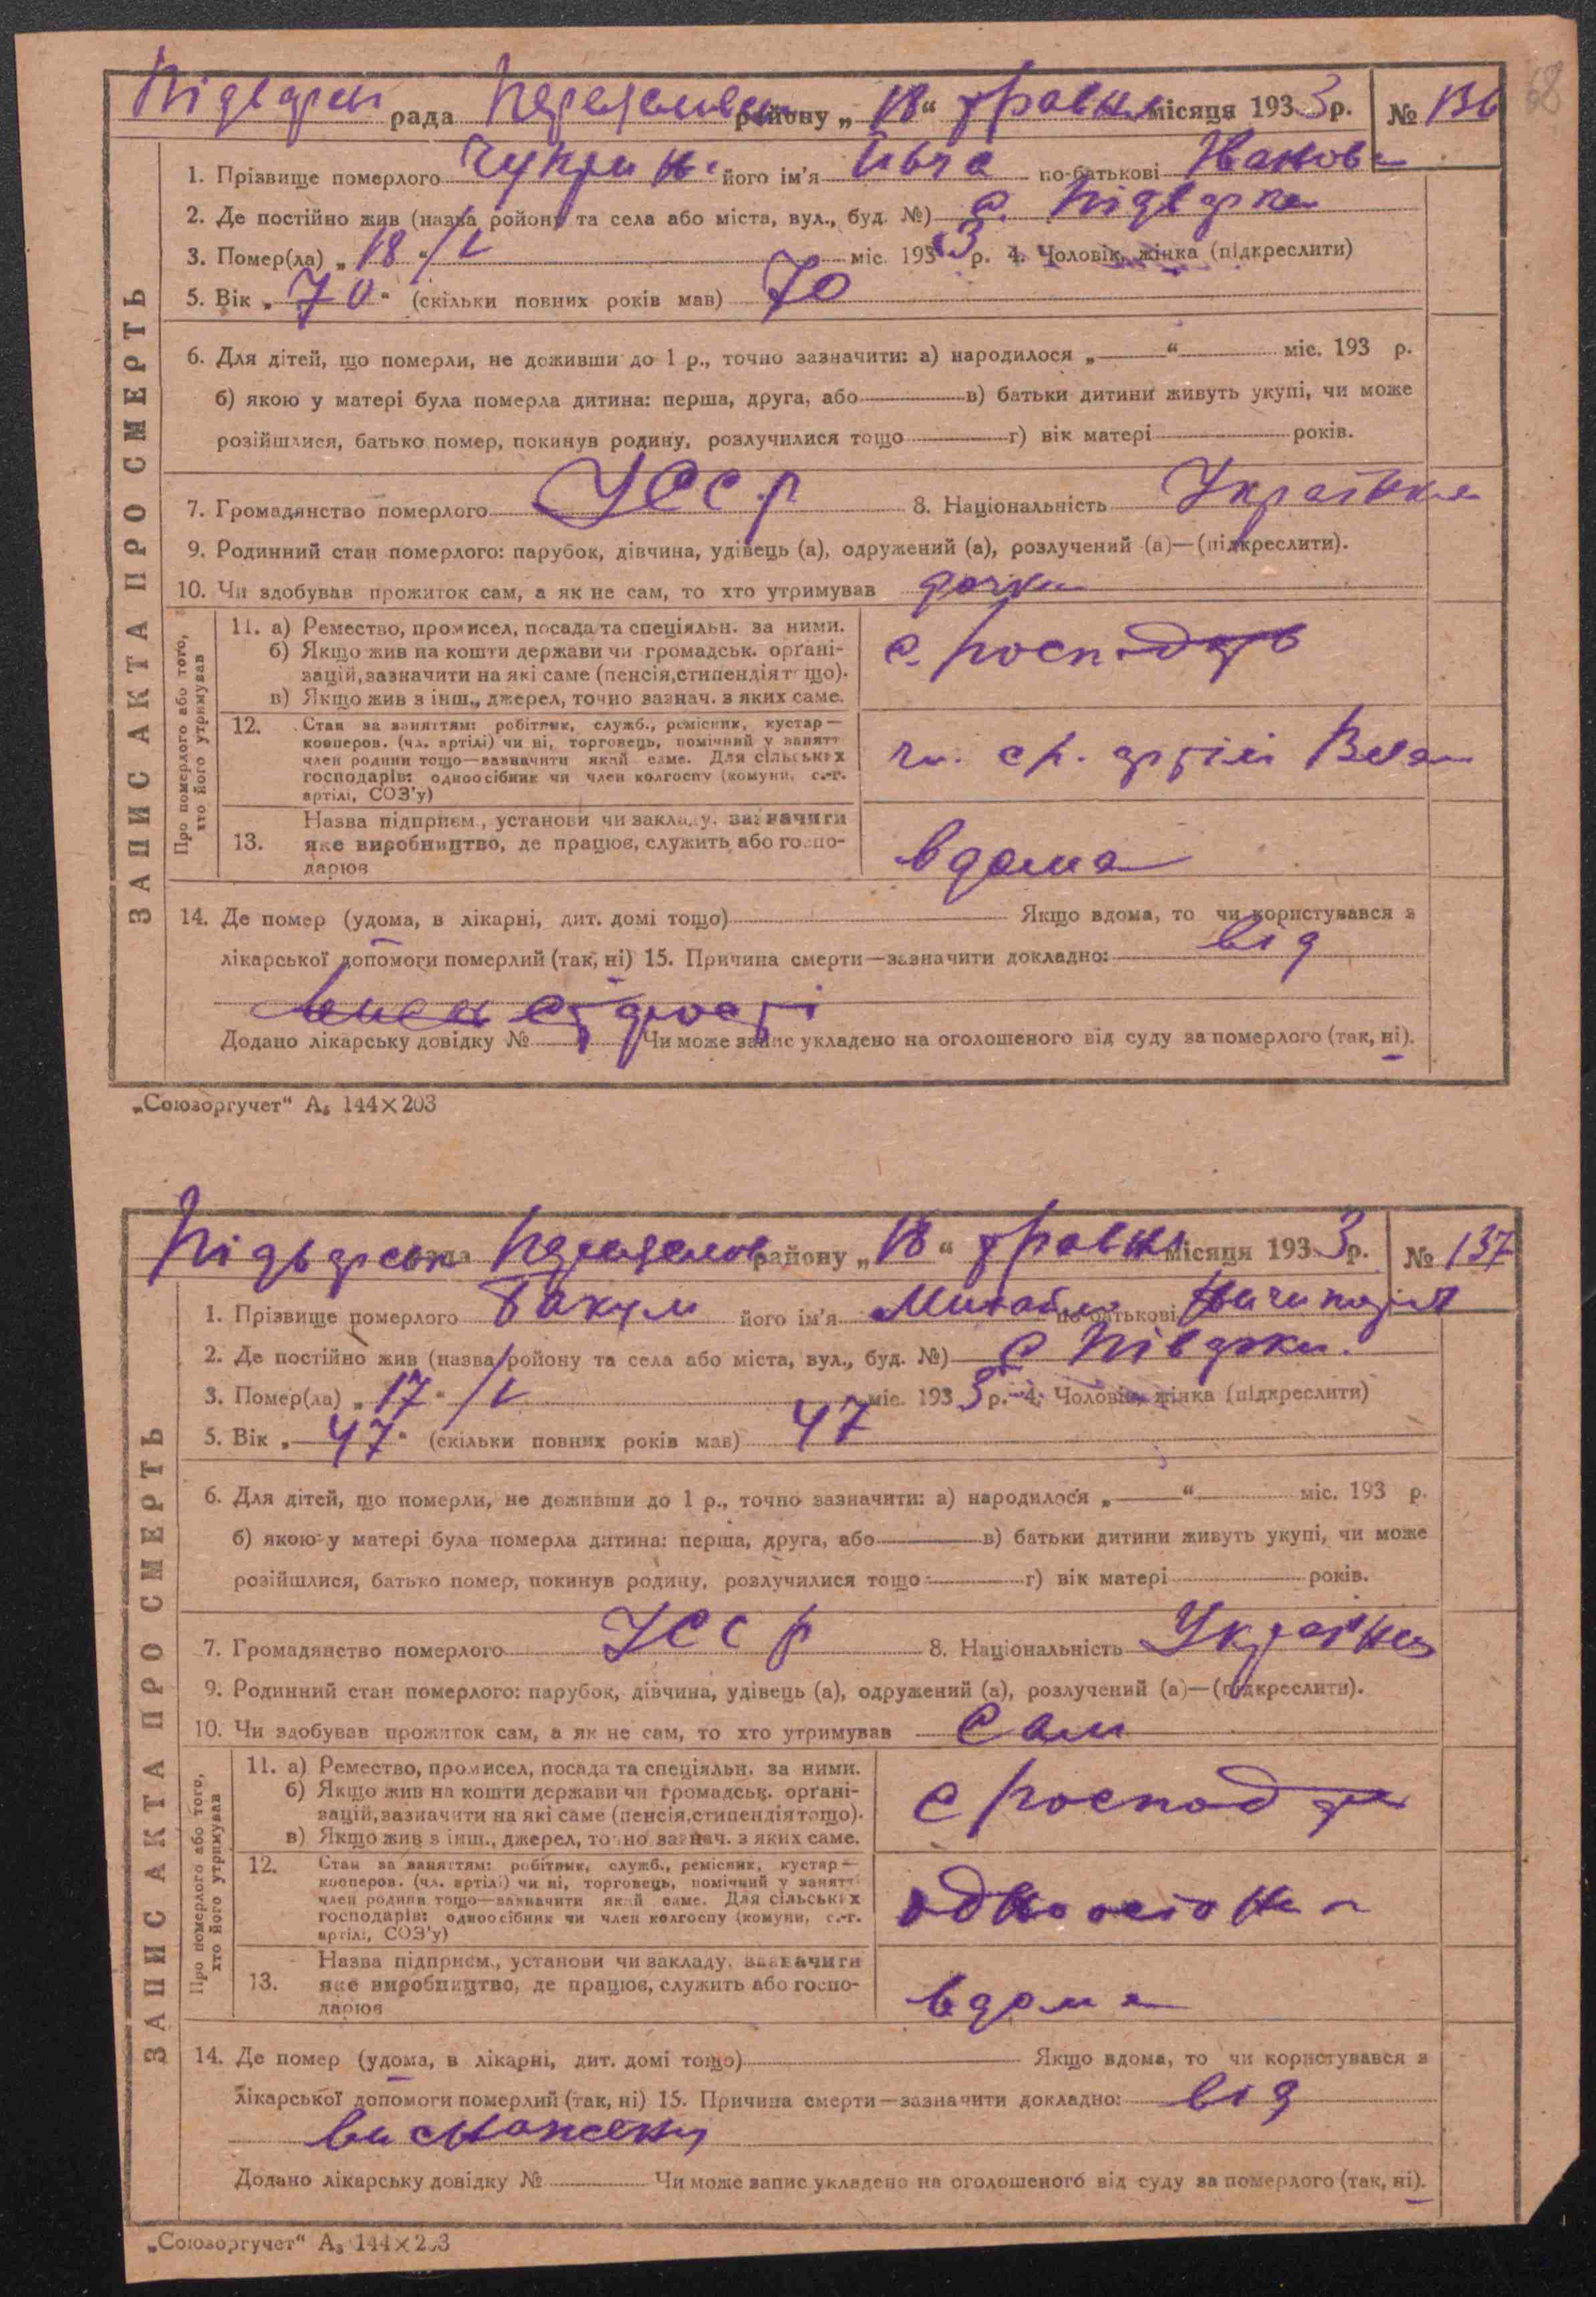 68
Підварки рада Переяславськ району „18“ травня місяця 1933 р. № 136
1. Прізвище померлого Чукрин його ім'я по-батькові Іванов
2. Де постійно жив (назва ройону та села або міста, вул., буд. №) с. Підварки
3. Помер(ла) „18“ /V міс. 1933 р. 4. Чоловік, жінка (підкреслити)
5. Вік „70“ (скільки повних років мав) 70
6. Для дітей, що померли, не доживши до 1 р., точно зазначити: а) народилося „ “ міс. 193 р.
б) якою у матері була померла дитина: перша, друга, або в) батьки дитини живуть укупі, чи може
розійшлися, батько помер, покинув родину, розлучилися тощо г) вік матері років.
7. Громадянство померлого УССР 8. Національність Українка
9. Родинний стан померлого: парубок, дівчина, удівець (а), одружений (а), розлучений (а)—(підкреслити).
10. Чи здобував прожиток сам, а як не сам, то хто утримував дочка
ЗАПИС АКТА ПРО СМЕРТЬ
Про померлого або того, хто його утримував
11. а) Ремество, промисел, посада та спеціяльн. за ними.
б) Якщо жив на кошти держави чи громадськ. органі-
зацій, зазначити на які саме (пенсія, стипендія тощо).
в) Якщо жив з інш., джерел, точно зазнач. з яких саме.
с. господар
12. Стан за заняттям: робітник, служб., ремісник, кустар—
кооперов. (чл. артілі) чи ні, торговець, помічний у занятт
член родини тощо—зазначити який саме. Для сільських
господарів: одноосібник чи член колгоспу (комуни, с.-г.
артілі, СОЗ'у)
чл. с.г. артілі
Назва підприєм., установи чи закладу, зазначити
13. яке виробництво, де працює, служить або госпо-
дарює
вдома
14. Де помер (удома, в лікарні, дит. домі тощо) Якщо вдома, то чи користувався з
лікарської допомоги померлий (так, ні) 15. Причина смерти—зазначити докладно: від
старості
Додано лікарську довідку № Чи може запис укладено на оголошеного від суду за померлого (так, ні).
„Союзоргучет“ А₅ 144×203
Підварськ рада Переяславськ району „18“ травня місяця 1933 р. № 137
1. Прізвище померлого Бакум його ім'я Михайло по-батькові Ничипор
2. Де постійно жив (назва ройону та села або міста, вул., буд. №) с Підварки.
3. Помер(ла) „17“ /V міс. 1933 р. 4. Чоловік, жінка (підкреслити)
5. Вік „47“ (скільки повних років мав) 47
6. Для дітей, що померли, не доживши до 1 р., точно зазначити: а) народилося „ “ міс. 193 р.
б) якою у матері була померла дитина: перша, друга, або в) батьки дитини живуть укупі, чи може
розійшлися, батько помер, покинув родину, розлучилися тощо г) вік матері років.
7. Громадянство померлого УССР 8. Національність Українец
9. Родинний стан померлого: парубок, дівчина, удівець (а), одружений (а), розлучений (а)—(підкреслити).
10. Чи здобував прожиток сам, а як не сам, то хто утримував сам
ЗАПИС АКТА ПРО СМЕРТЬ
Про померлого або того, хто його утримував
11. а) Ремество, промисел, посада та спеціяльн. за ними.
б) Якщо жив на кошти держави чи громадськ. органі-
зацій, зазначити на які саме (пенсія, стипендія тощо).
в) Якщо жив з інш., джерел, точно зазнач. з яких саме.
с господар
12. Стан за заняттям: робітник, служб., ремісник, кустар—
кооперов. (чл. артілі) чи ні, торговець, помічний у занятт
член родини тощо—зазначити який саме. Для сільських
господарів: одноосібник чи член колгоспу (комуни, с.-г.
артілі, СОЗ'у)
одноосібник
Назва підприєм., установи чи закладу, зазначити
13. яке виробництво, де працює, служить або госпо-
дарює
вдома
14. Де помер (удома, в лікарні, дит. домі тощо) Якщо вдома, то чи користувався з
лікарської допомоги померлий (так, ні) 15. Причина смерти—зазначити докладно: від
виснаження
Додано лікарську довідку № Чи може запис укладено на оголошеного від суду за померлого (так, ні).
„Союзоргучет“ А₅ 144×203